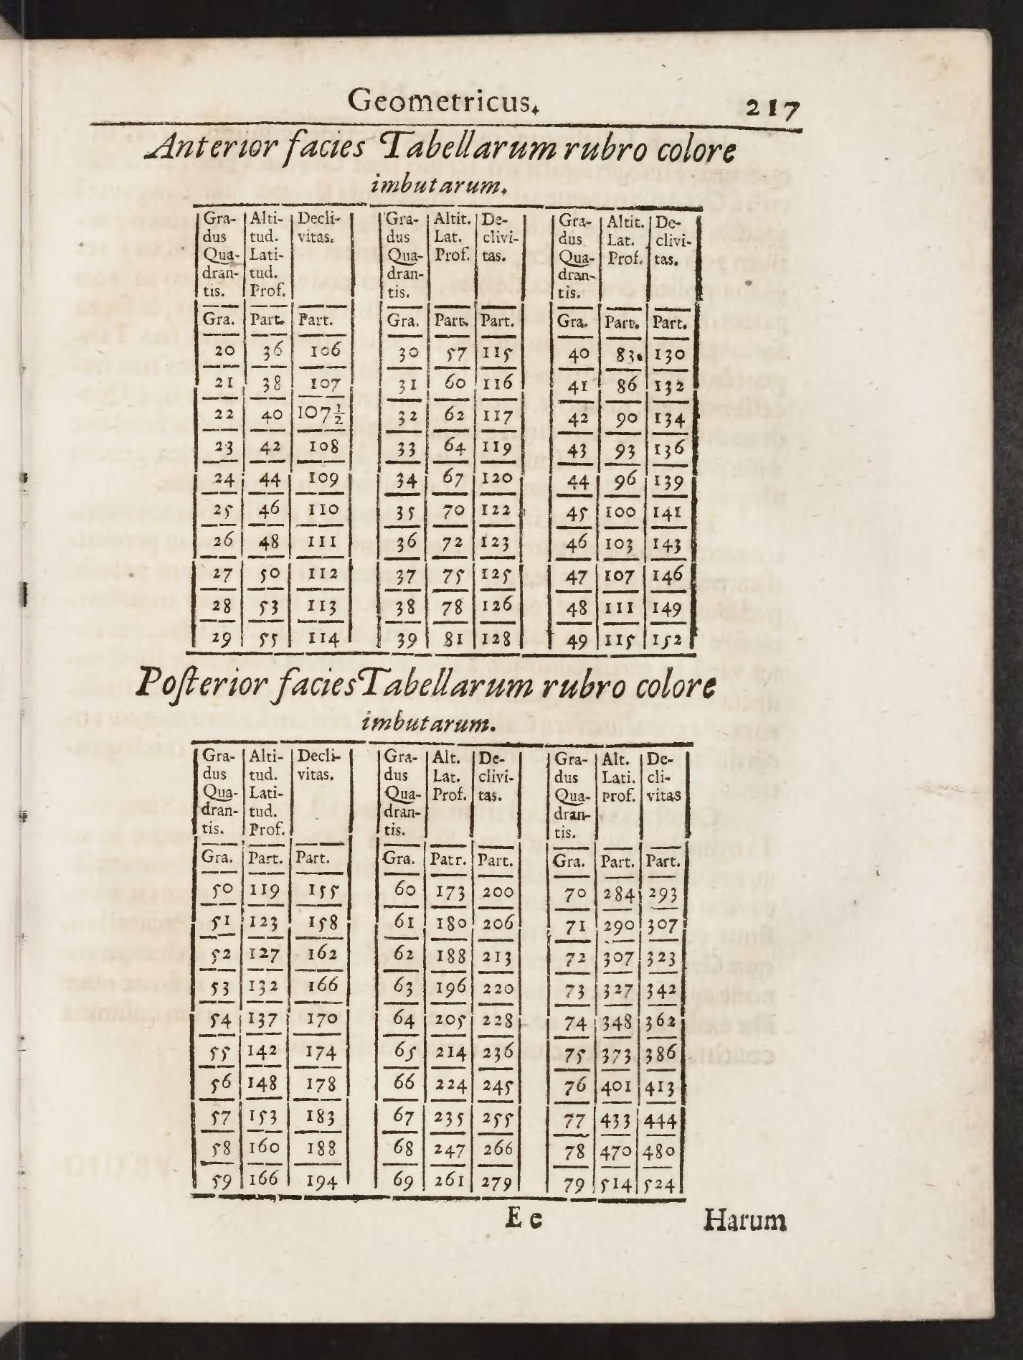 Geometricus. 217
Anterior facies Tabellarum rubro colore
imbutarum.
Gra- Alti- Decli- Gra- Altit. De- Gra- Altit. De-
dus tud. vitas. dus Lat. clivi- dus Lat. clivi-
Qua- Lati- Qua- Prof. tas. Qua- Prof. tas.
dran- tud. dran- dran-
tis. Prof. tis. tis.
Gra. Part. Part. Gra. Part. Part. Gra. Part. Part.
20 36 106 30 57 115 40 83. 130
21 38 107 31 60 116 41 86 132
22 40 107 1/2 32 62 117 42 90 134
23 42 108 33 64 119 43 93 136
24 44 109 34 67 120 44 96 139
25 46 110 35 70 122 45 100 141
26 48 111 36 72 123 46 103 143
27 50 112 37 75 125 47 107 146
28 53 113 38 78 126 48 111 149
29 55 114 39 81 128 49 115 152
Posterior facies Tabellarum rubro colore
imbutarum.
Gra- Alti- Decli- Gra- Alt. De- Gra- Alt. De-
dus tud. vitas. dus Lat. clivi- dus Lati. cli-
Qua- Lati- Qua- Prof. tas. Qua- Prof. vitas
dran- tud. dran- dran-
tis. Prof. tis. tis.
Gra. Part. Part. Gra. Patr. Part. Gra. Part. Part.
50 119 155 60 173 200 70 284 293
51 123 158 61 180 206 71 290 307
52 127 162 62 188 213 72 307 323
53 132 166 63 196 220 73 327 342
54 137 170 64 205 228 74 348 362
55 142 174 65 214 236 75 373 386
56 148 178 66 224 245 76 401 413
57 153 183 67 235 255 77 433 444
58 160 188 68 247 266 78 470 480
59 166 194 69 261 279 79 514 524
E e Harum